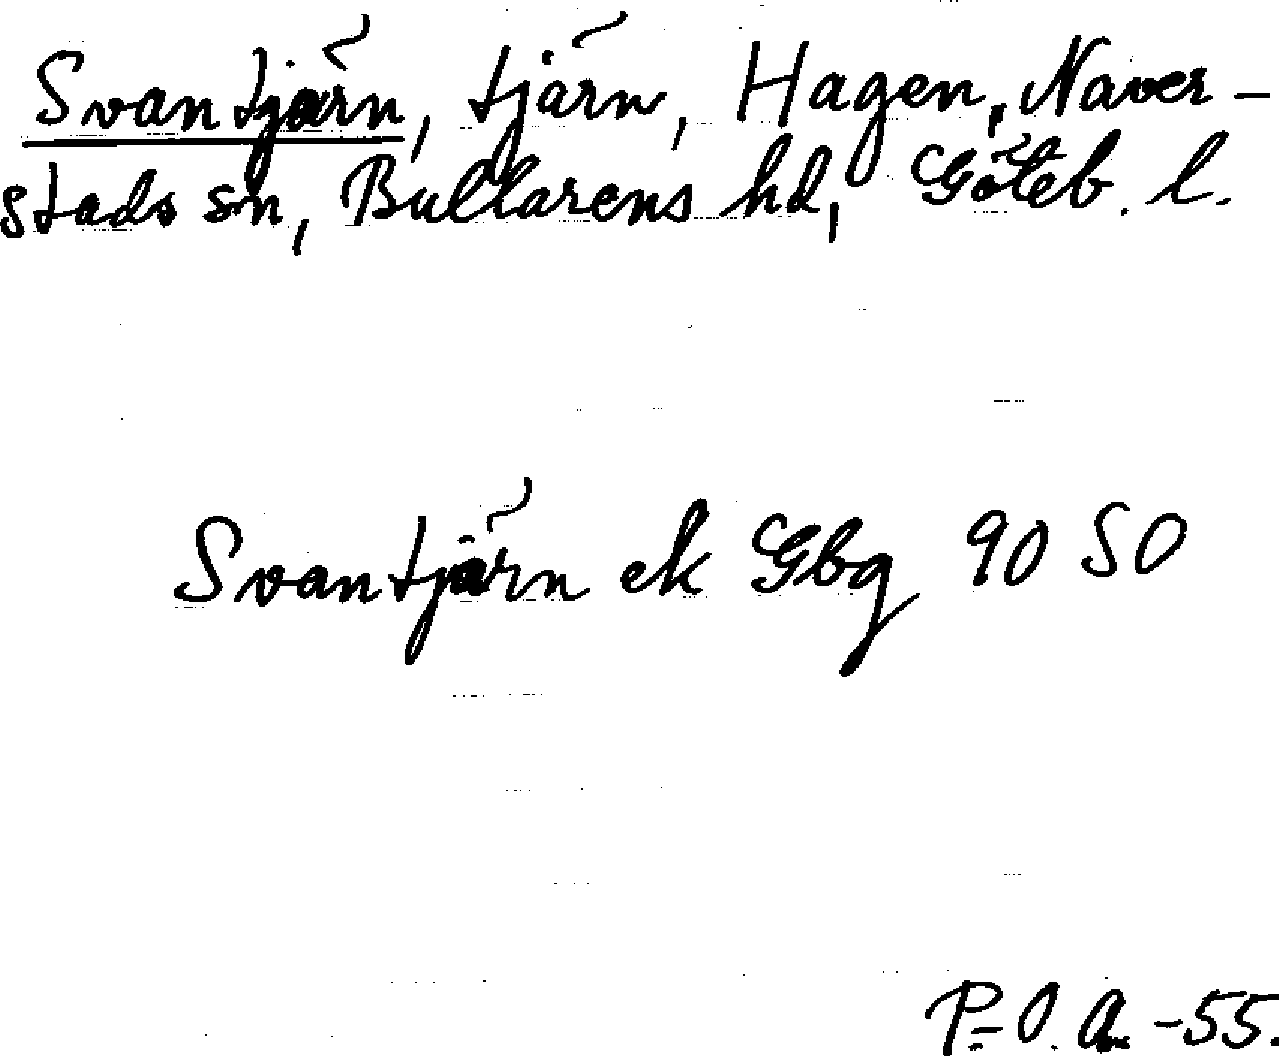 Svantjärn, tjärn, Hagen, Naver-
stads sn, Bullarens hd, Göteb. l.
Svantjärn ek Gbg 90 SO
P.O. A. -55.